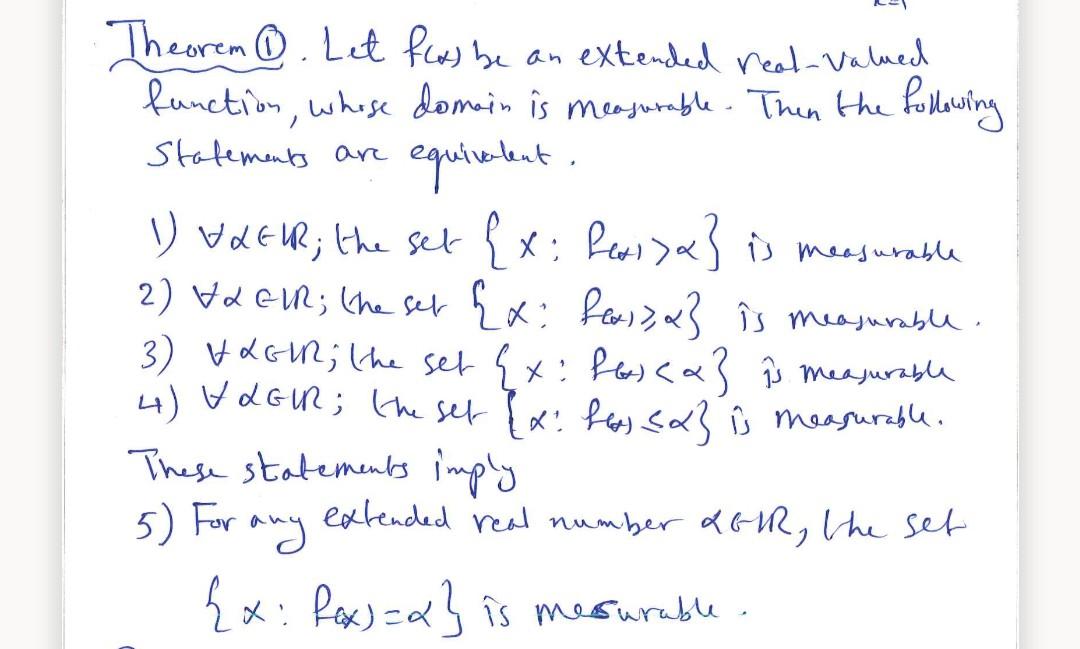 Theorem ①. Let f(x) be an extended real-valued
function, whose domain is measurable. Then the following
statements are equivalent.
1) ∀α∈ℝ; the set {x: f(x)>α} is measurable
2) ∀α∈ℝ; the set {x: f(x)≥α} is measurable.
3) ∀α∈ℝ; the set {x: f(x)<α} is measurable
4) ∀α∈ℝ; the set {x: f(x)≤α} is measurable.
These statements imply
5) For any extended real number α∈ℝ, the set
{x: f(x)=α} is mesurable.